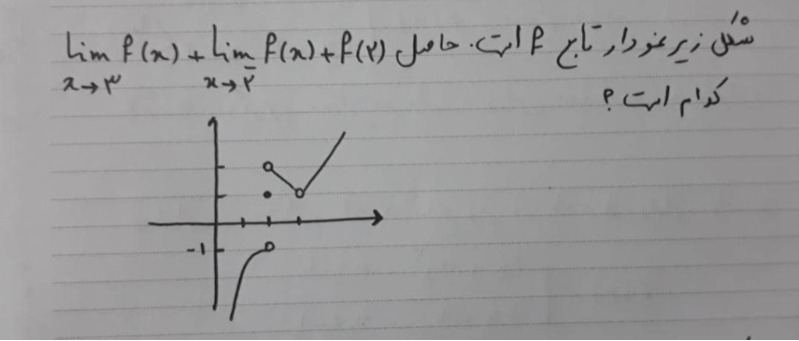 شکل زیر نمودار تابع f است. حاصل lim f(x) + lim f(x) + f(۲)
x→۳ x→۲⁻
کدام است ؟
-1